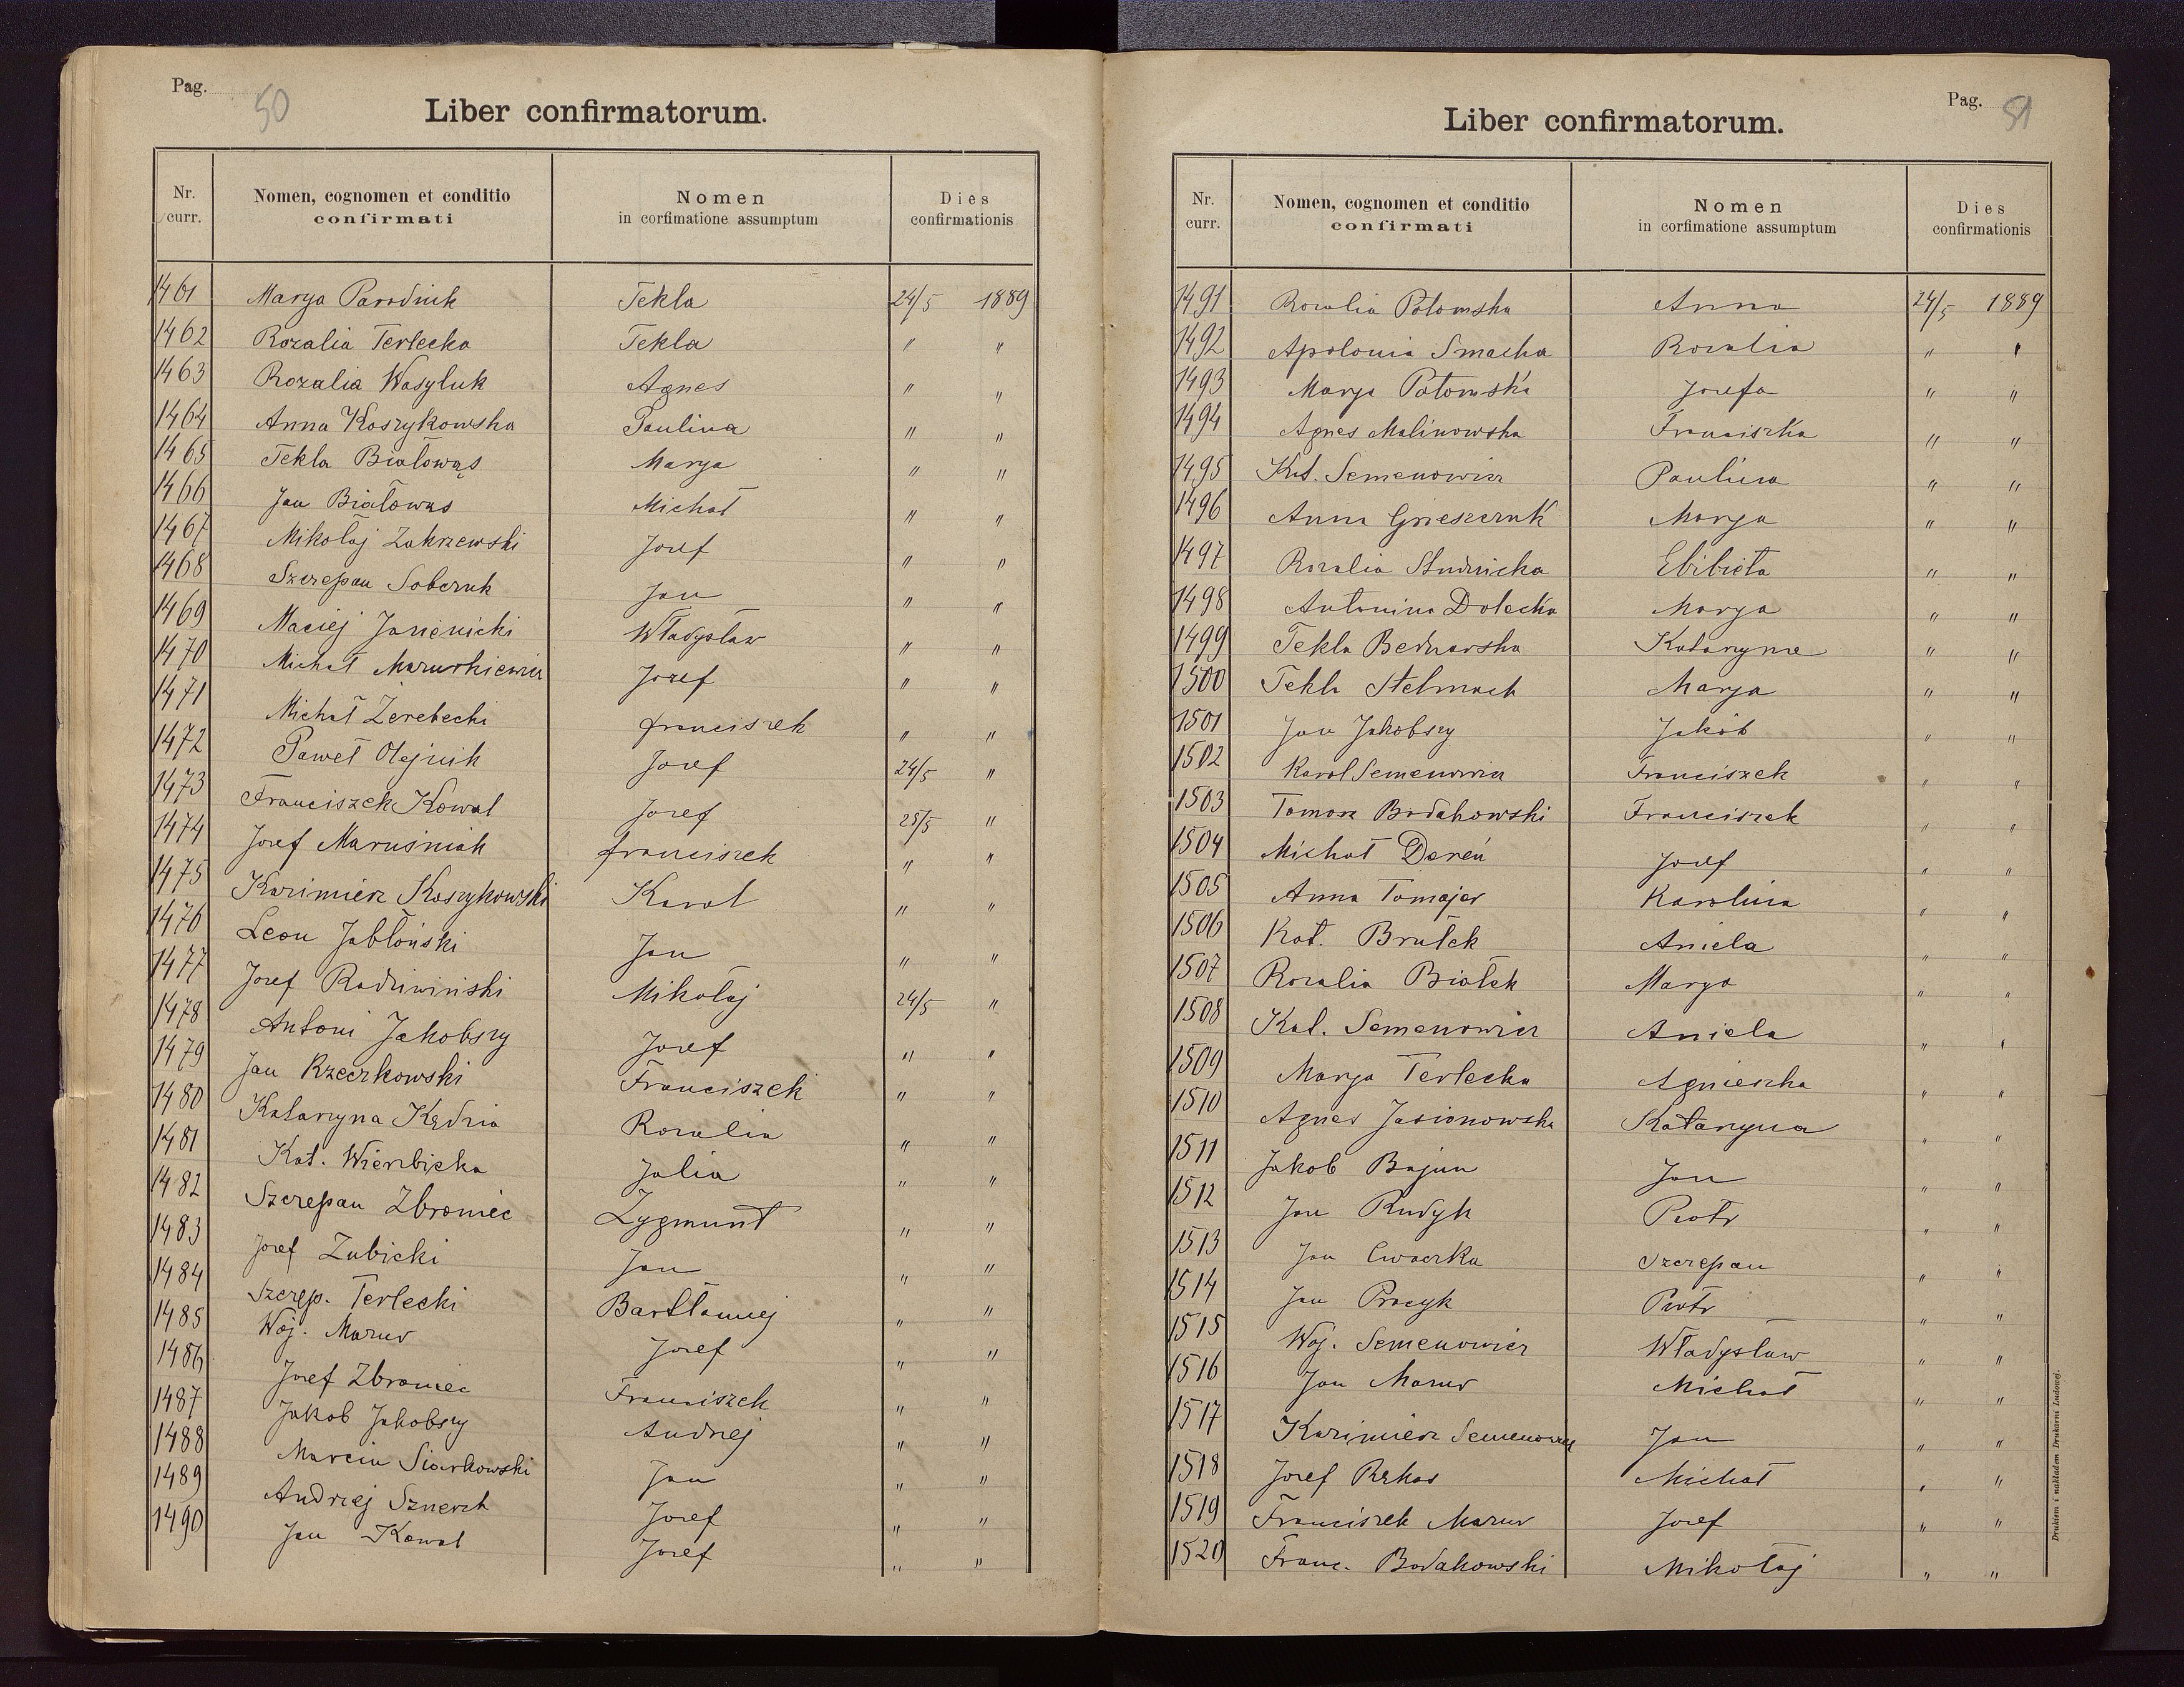 Pag. 50
Liber confirmatorum.
Nr. curr. Nomen, cognomen et conditio confirmati Nomen in corfimatione assumptum Dies confirmationis
1461 Marya Parodnik Tekla 24/5 1889
1462 Rozalia Terlecka Tekla " "
1463 Rozalia Wasyluk Agnes " "
1464 Anna Koszykowska Paulina " "
1465 Tekla Białowąs Marya " "
1466 Jan Białowąs Michał " "
1467 Mikołaj Zakrzewski Jozef " "
1468 Szczepan Sobczuk Jan " "
1469 Maciej Jasienicki Władysław " "
1470 Michał Mazurkiewicz Jozef " "
1471 Michał Zerebecki franciszek " "
1472 Paweł Olejnik Jozef 24/5 "
1473 Franciszek Kowal Jozef 25/5 "
1474 Jozef Maruśniak franciszek " "
1475 Kazimierz Koszykowski Karol " "
1476 Leon Jabłoński Jan " "
1477 Jozef Radziwiński Mikołaj 24/5 "
1478 Antoni Jakobszy Jozef " "
1479 Jan Rzeczkowski Franciszek " "
1480 Katarzyna Kędzia Rozalia " "
1481 Kat. Wierzbicka Julia " "
1482 Szczepan Zbroniec Zygmunt " "
1483 Jozef Zubicki Jan " "
1484 Szczep. Terlecki Bartłomiej " "
1485 Woj. Mazur Jozef " "
1486 Jozef Zbroniec Franciszek " "
1487 Jakob Jakobszy Andrzej " "
1488 Marcin Siarkowski Jan " "
1489 Andrzej Sznerch Jozef " "
1490 Jan Kowal Jozef " "
Pag. 51
Liber confirmatorum.
Nr. curr. Nomen, cognomen et conditio confirmati Nomen in corfimatione assumptum Dies confirmationis
1491 Rozalia Potomska Anna 24/5 1889
1492 Apolonia Smacha Rozalia " "
1493 Marya Potomska Jozefa " "
1494 Agnes Malinowska Franciszka " "
1495 Kat. Semenowicz Paulina " "
1496 Anna Grieszczuk Marya " "
1497 Rozalia Studnicka Elzbieta " "
1498 Antonina Dolecka Marya " "
1499 Tekla Bednarska Katarzyna " "
1500 Tekla Stelmach Marya " "
1501 Jan Jakobszy Jakób " "
1502 Karol Semenowicz Franciszek " "
1503 Tomasz Bodakowski Franciszek " "
1504 Michał Dereń Jozef " "
1505 Anna Tomajer Karolina " "
1506 Kat. Brutek Aniela " "
1507 Rozalia Białek Marya " "
1508 Kat. Semenowicz Aniela " "
1509 Marya Terlecka Agnieszka " "
1510 Agnes Jasionowska Katarzyna " "
1511 Jakob Bajun Jan " "
1512 Jan Rudyk Piotr " "
1513 Jan Cwaczka Szczepan " "
1514 Jan Procyk Piotr " "
1515 Woj. Semenowicz Władysław " "
1516 Jan Mazur Michał " "
1517 Kazimierz Semenowicz Jan " "
1518 Jozef Rękas Michał " "
1519 Franciszek Mazur Jozef " "
1520 Franc. Bodakowski Mikołaj " "
Drukiem i nakładem Drukarni Ludowej.